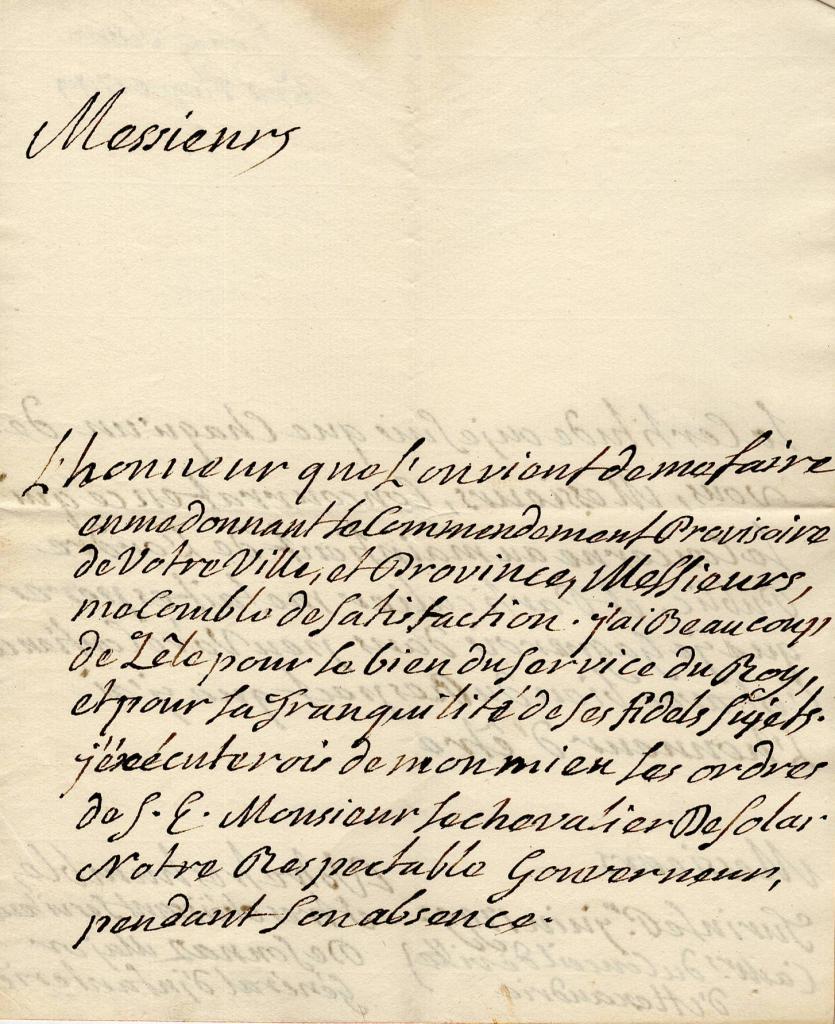 Messieurs
L'honneur que L'on vient de me faire
en me donnant le Commendement Provisoire
de Votre Ville, et Province, Messieurs,
me Comble de Satisfaction. j'ai Beaucoup
de Zêle pour le bien du Service du Roy,
et pour la Tranquilité de ses fidels Sujets.
j'éxécuterois de mon mieu les ordres
de S. E. Monsieur le chevalier De Solar
Notre Respectable Gouverneur,
pendant Son absence.